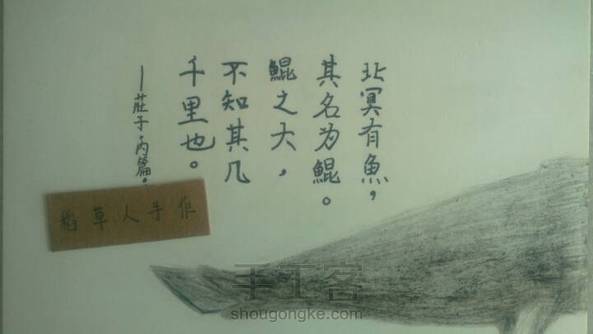 北冥有魚，
其名为鯤。
鯤之大，
不知其几
千里也。
—莊子·内篇。
稻草人手作
手工客
shougongke.com